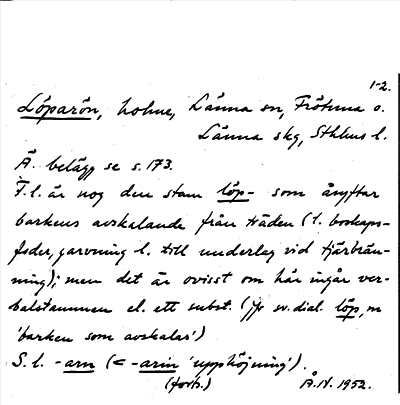 1-2.
Löparön, holme, Länna sn, Frötuna o.
Länna skg, Sthlms l.
Ä. belägg se s. 173.
F.l. är nog den stam löp- som åsyftar
barkens avskalande från träden (t. boskaps-
foder, garvning l. till underlag vid tjärbrän-
ning); men det är ovisst om här ingår ver-
balstammen el. ett subst. (jfr sv. dial. löp, m
'barken som avskalas')
S.l. -arn (< -arin 'upphöjning').
(forts.) Å.N. 1952.